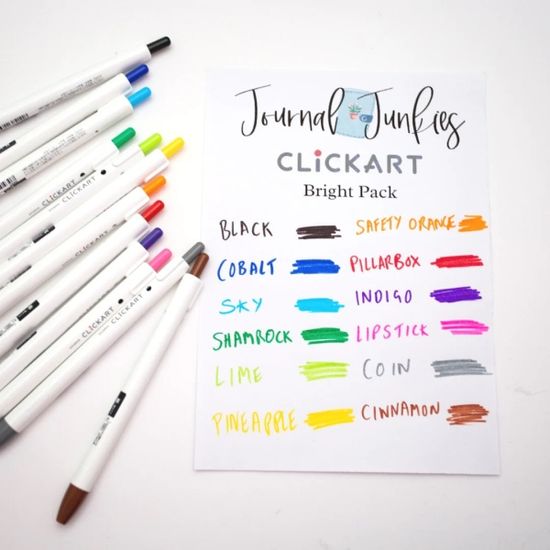 Journal Junkies
CLiCKART
Bright Pack
BLACK
SAFETY ORANGE
COBALT
PILLARBOX
SKY
INDIGO
SHAMROCK
LIPSTICK
LIME
COIN
PINEAPPLE
CINNAMON
CLICKART
CLICKART
CLICKART
CLICKART